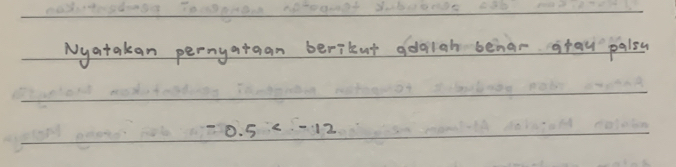 Nyatakan pernyataan berikut adalah benar atau palsu
-0.5 < -12